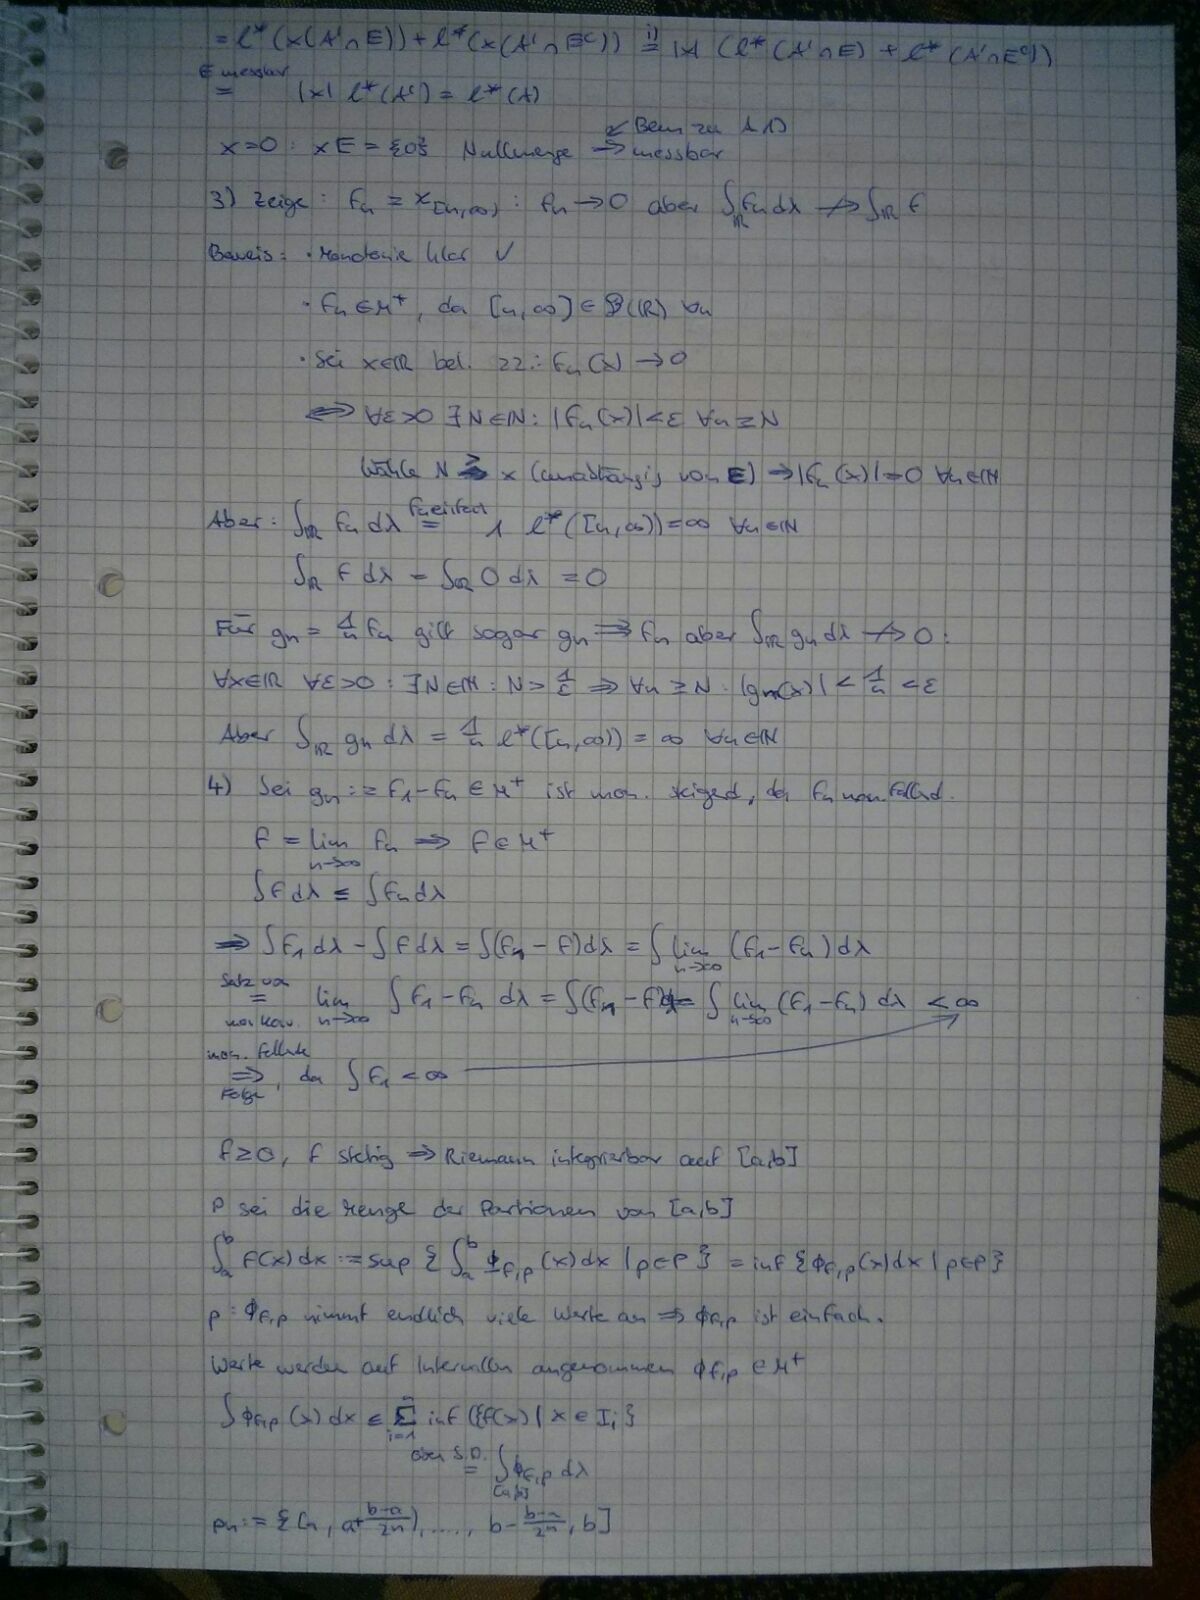 = l*(x(A'∩E)) + l*(x(A'∩E^c)) =^{i)} |x| (l*(A'∩E) + l*(A'∩E^c))
=^{E messbar} |x| l*(A') = l*(A)
x=0 : xE = {0} Nullmenge ⇒ messbar ↙ Bem zu A 1)
3) Zeige : f_n = χ_[n,∞) : f_n → 0 aber ∫_ℝ f_n dλ ↛ ∫_ℝ f
Beweis : · Monotonie klar ✓
· f_n ∈ M⁺, da [n,∞] ∈ B(ℝ) ∀n
· Sei x∈ℝ bel. zz.: f_n(x) → 0
⟺ ∀ε>0 ∃N∈ℕ : |f_n(x)| < ε ∀n ≥ N
Wähle N > x (unabhängig von ε) ⇒ |f_n(x)| = 0 ∀n∈ℕ
Aber : ∫_ℝ f_n dλ =^{f_n einfach} 1 l*([n,∞)) = ∞ ∀n∈ℕ
∫_ℝ f dλ = ∫_ℝ 0 dλ = 0
Für g_n = 1/n f_n gilt sogar g_n ⇉ f_n aber ∫_ℝ g_n dλ ↛ 0 :
∀x∈ℝ ∀ε>0 : ∃N∈ℕ : N > 1/ε ⇒ ∀n ≥ N : |g_n(x)| < 1/n < ε
Aber ∫_ℝ g_n dλ = 1/n l*([n,∞)) = ∞ ∀n∈ℕ
4) Sei g_n := f_1 - f_n ∈ M⁺ ist mon. steigend, da f_n mon. fallend.
f = lim_{n→∞} f_n ⇒ f ∈ M⁺
∫ f dλ ≤ ∫ f_n dλ
⇒ ∫ f_1 dλ - ∫ f dλ = ∫ (f_1 - f) dλ = ∫ lim_{n→∞} (f_1 - f_n) dλ
=^{Satz von}_{mon Konv.} lim_{n→∞} ∫ f_1 - f_n dλ = ∫ (f_1 - f) = ∫ lim_{n→∞} (f_1 - f_n) dλ < ∞
⇒^{mon. fallende}_{Folge}, da ∫ f_1 < ∞
f ≥ 0, f stetig ⇒ Riemann integrierbar auf [a,b]
P sei die Menge der Partionen von [a,b]
∫_a^b f(x) dx := sup { ∫_a^b Φ_{f,p}(x) dx | p∈P } = inf { Φ_{f,p}(x) dx | p∈P }
p : Φ_{f,p} nimmt endlich viele Werte an ⇒ Φ_{f,p} ist einfach.
Werte werden auf Intervallen angenommen Φ_{f,p} ∈ M⁺
∫ Φ_{f,p}(x) dx ≤ Σ_{i=1}^n inf ({f(x) | x ∈ I_i}
=^{S.O.} ∫_[a,b] Φ_{f,p} dλ
p_n := {[a, a+(b-a)/2^n), ...., b-(b-a)/2^n, b]